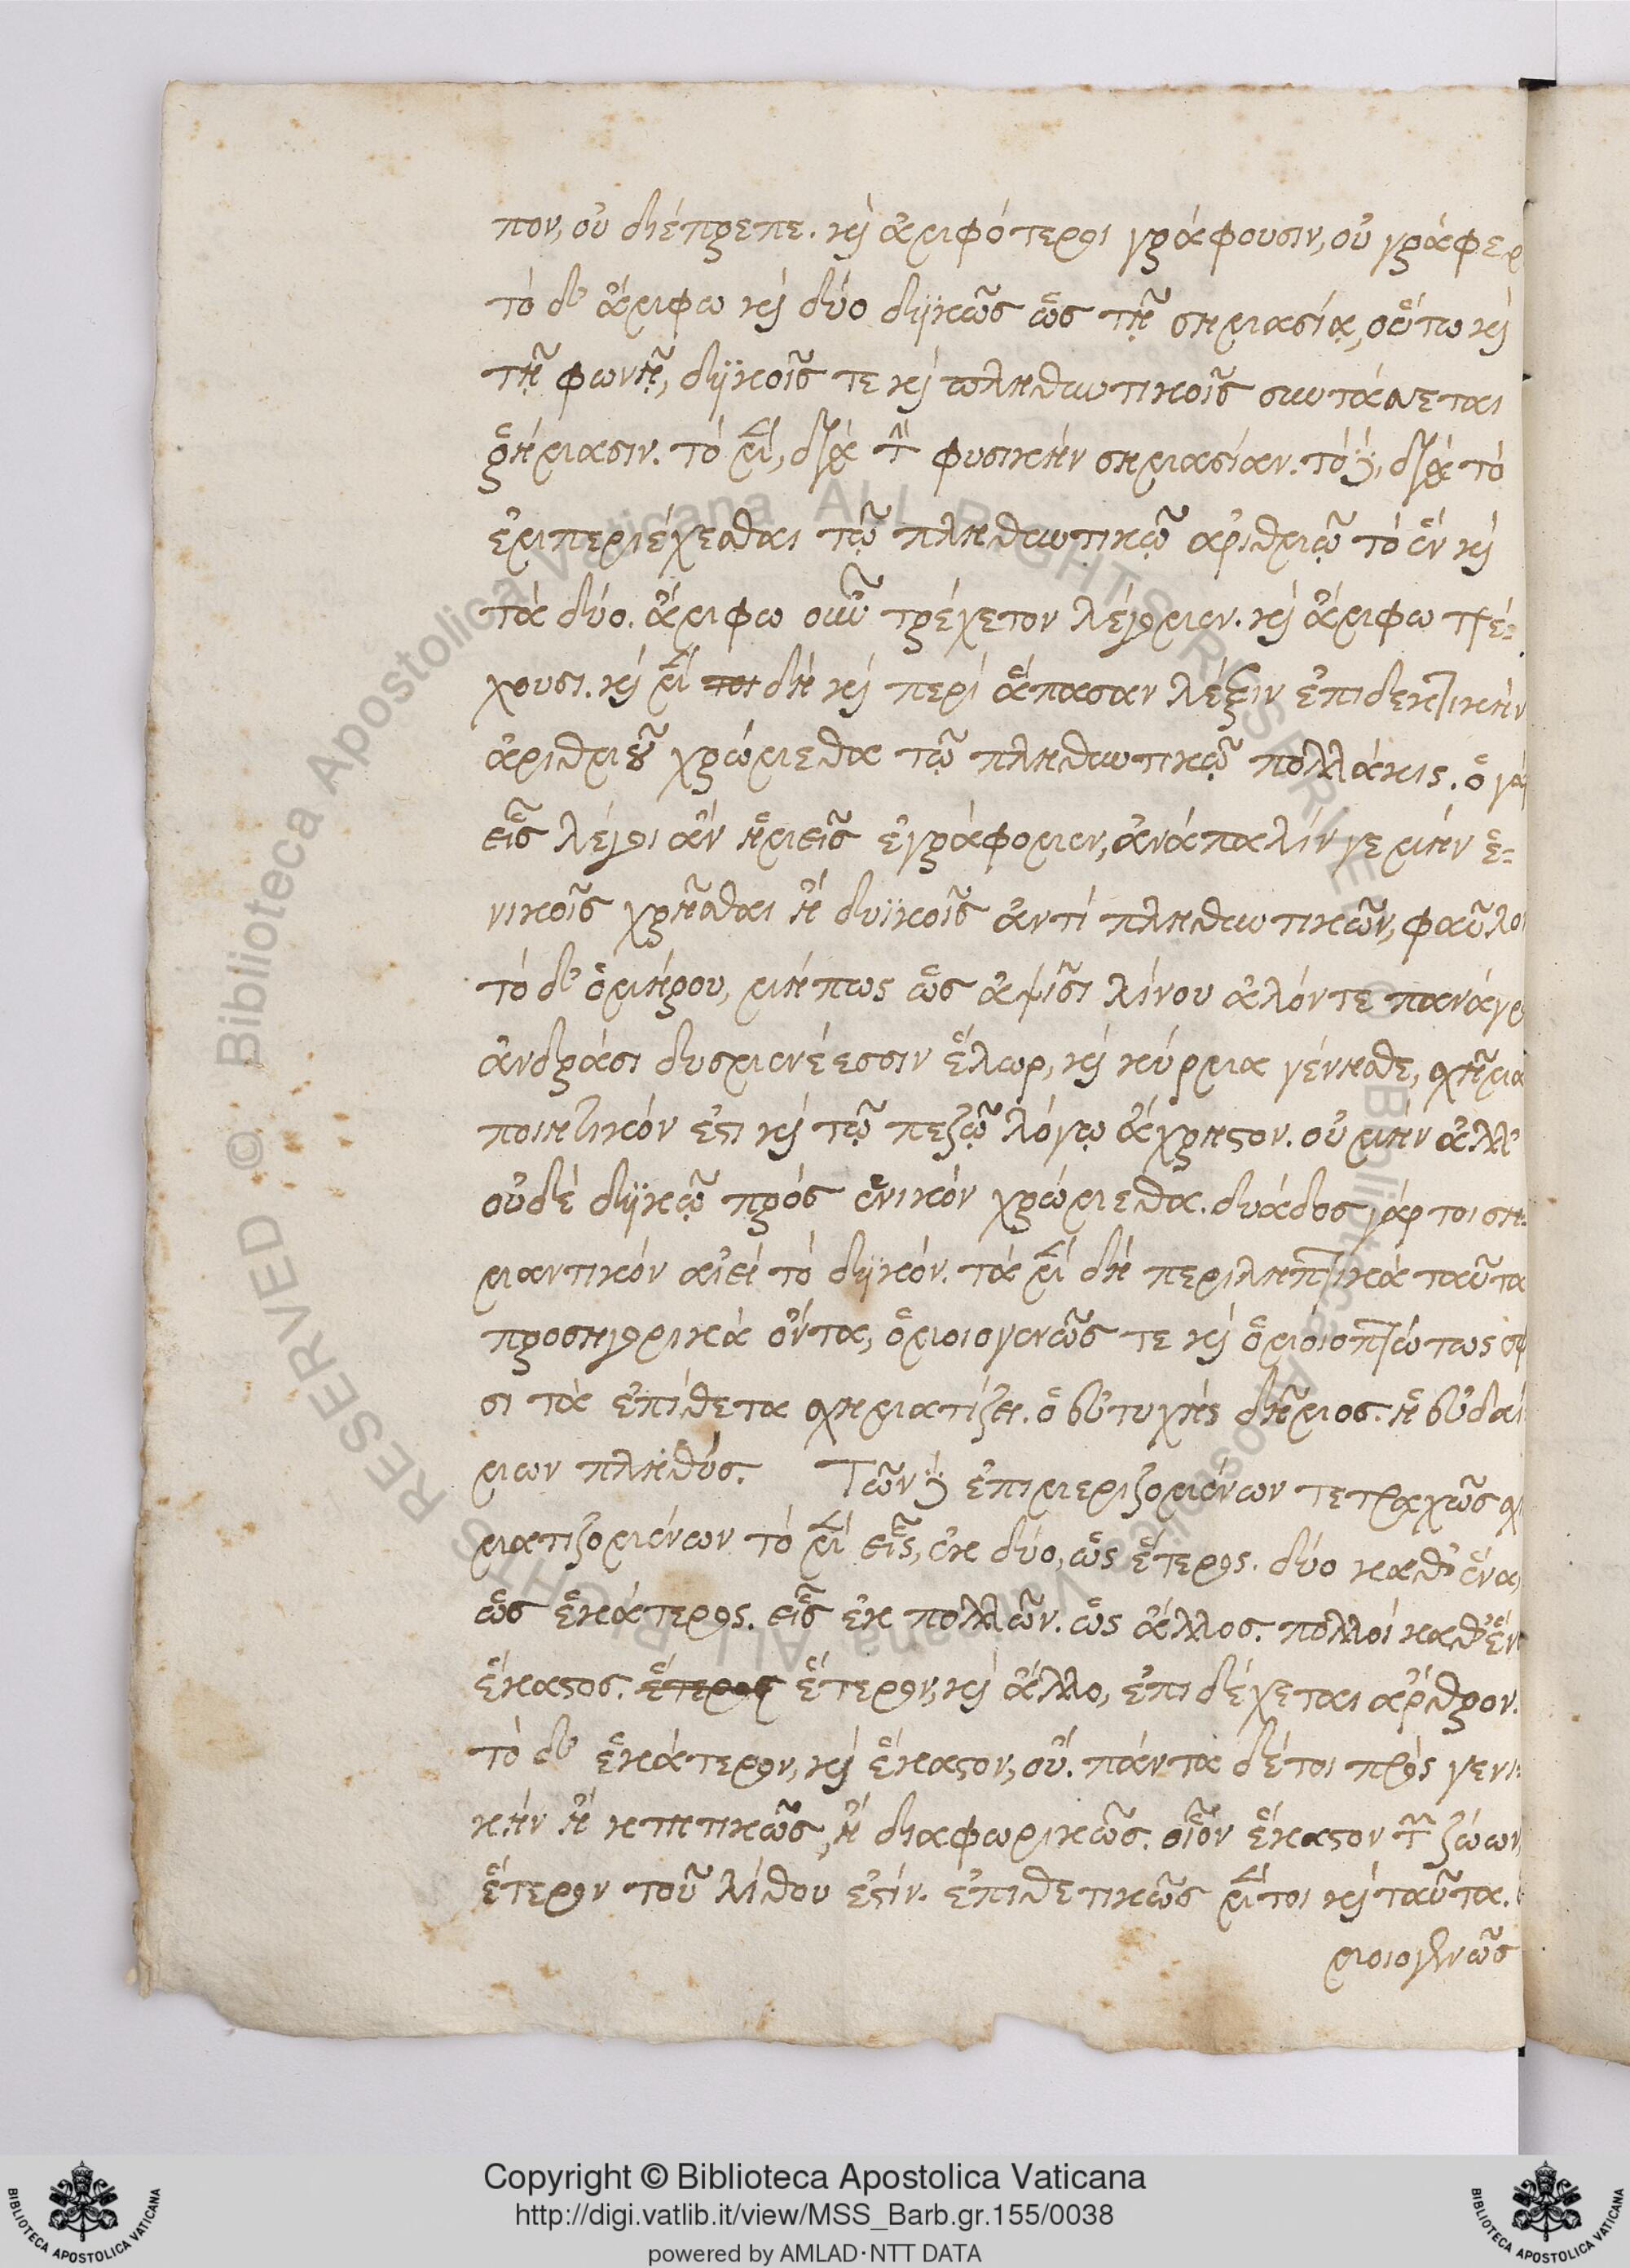 πον, οὐ διέπρεπε. καὶ ἀμφότεροι γράφουσιν, οὐ γράφει
τὸ δ' ἄμφω καὶ δύο δυϊκῶς ὡς τῇ σημασίᾳ, οὕτω καὶ
τῇ φωνῇ, δυϊκοῖς τε καὶ πληθυντικοῖς συντάσσεται
ῥήμασιν. τὸ μὲν, διὰ τὴν φυσικὴν σημασίαν. τὸ δὲ, διὰ τὸ
ἐμπεριέχεσθαι τῷ πληθυντικῷ ἀριθμῷ τὸ ἓν καὶ
τὰ δύο. ἄμφω οὖν τρέχετον λέγομεν. καὶ ἄμφω τρέ-
χουσι. καὶ μὲν δὴ καὶ περὶ ἅπασαν λέξιν ἐπιδεκτικὴν
ἀριθμοῦ χρώμεθα τῷ πληθυντικῷ πολλάκις. ὃ γὰρ
εἷς λέγοι ἂν ἡμεῖς ἐγράφομεν, ἀνάπαλίν γε μὴν ἑ-
νικοῖς χρῆσθαι ἢ δυϊκοῖς ἀντὶ πληθυντικῶν, φαῦλον
τὸ δ' ὁμήρου, μήπως ὡς ἀψῖσι λίνου ἁλόντε πανάγρου
ἀνδράσι δυσμενέεσσιν ἕλωρ, καὶ κύρμα γένησθε, σχῆμα
ποιητικόν ἐστι καὶ τῷ πεζῷ λόγῳ ἄχρηστον. οὐ μὴν ἀλλ'
οὐδὲ δυϊκῷ πρὸς ἑνικὸν χρώμεθα. δυάδος γάρ τοι ση-
μαντικὸν αἰεὶ τὸ δυϊκόν. τὰ μὲν δὴ περιληπτικὰ ταῦτα
προσηγορικὰ ὄντα, ὁμοιογενῶς τε καὶ ὁμοιοπτώτως
σι τὰ ἐπίθετα σχηματίζει. ὁ εὐτυχὴς δῆμος. ἡ εὐδαί
μων πληθύς. Τῶν δὲ ἐπιμεριζομένων τετραχῶς σχη
ματιζομένων τὸ μὲν εἷς, ἐκ δύο, ὡς ἕτερος. δύο καθ' ἕνα,
ὡς ἑκάτερος. εἷς ἐκ πολλῶν. ὡς ἄλλος. πολλοὶ καθ' ἕν
ἕκαστος. ἕτερος ἕτερον, καὶ ἄλλο, ἐπιδέχεται ἄρθρον.
τὸ δ' ἑκάτερον, καὶ ἕκαστον, οὔ. πάντα δέ τοι πρὸς γενι-
κὴν ἢ κτητικῶς, ἢ διαφωρικῶς. οἷον ἕκαστον τῶν ζώων,
ἕτερον τοῦ λίθου ἐστίν. ἐπιθετικῶς μέντοι καὶ ταῦτα.
μοιογενῶς
Copyright © Biblioteca Apostolica Vaticana
http://digi.vatlib.it/view/MSS_Barb.gr.155/0038
powered by AMLAD·NTT DATA